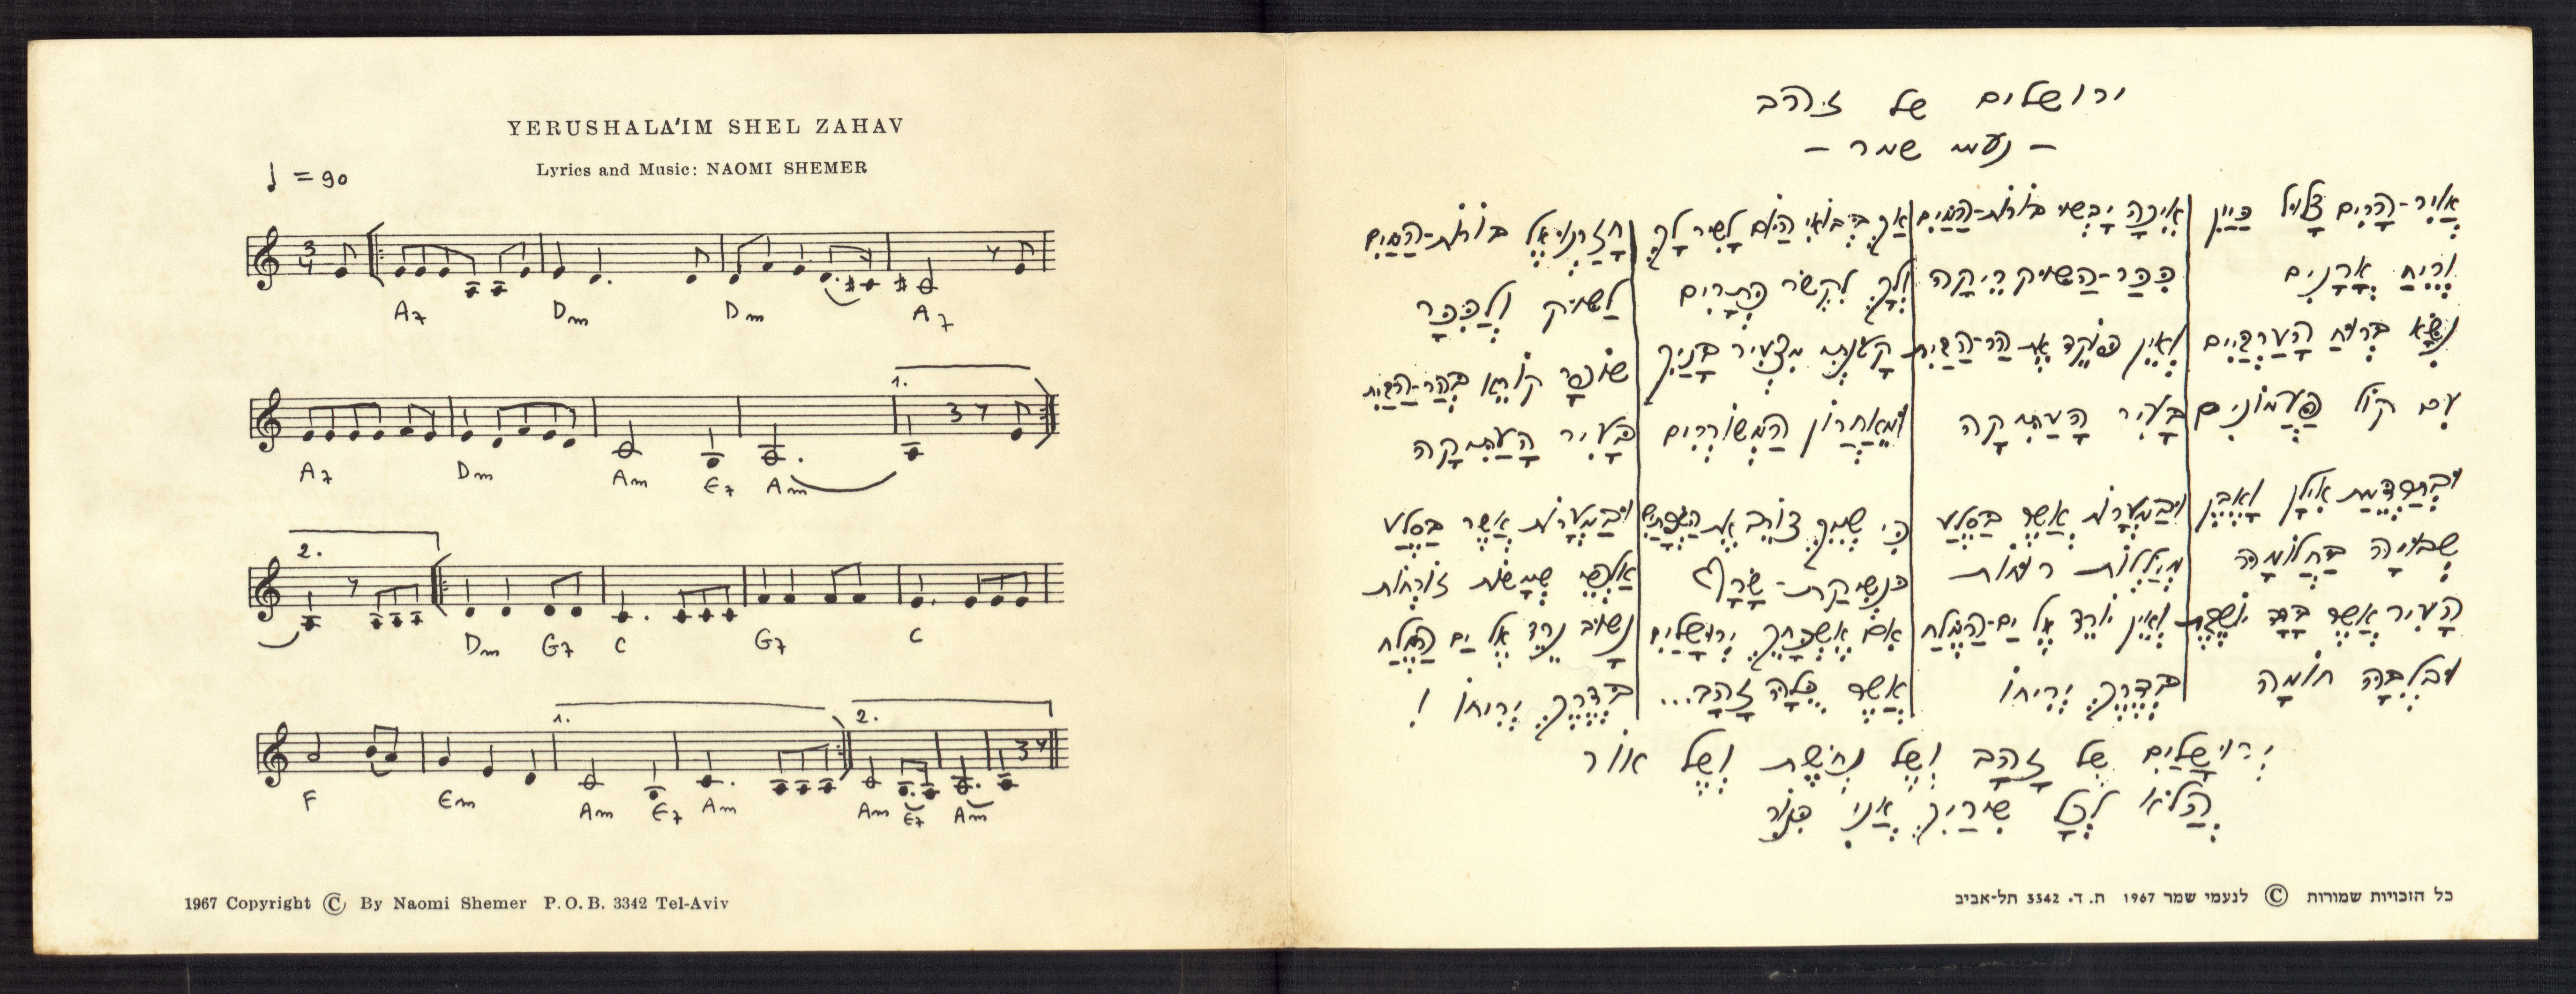 YERUSHALA'IM SHEL ZAHAV
Lyrics and Music: NAOMI SHEMER
♩ = 90
3/4
A7 Dm Dm A7
1.
A7 Dm Am E7 Am
2.
Dm G7 C G7 C
1. 2.
F Em Am E7 Am Am E7 Am
1967 Copyright © By Naomi Shemer P.O.B. 3342 Tel-Aviv
ירושלים של זהב
– נעמי שמר –
אֲוִיר-הָרִים צָלוּל כַּיַּיִן
וְרֵיחַ אֳרָנִים
נִשָּׂא בְּרוּחַ הָעַרְבַּיִם
עִם קוֹל פַּעֲמוֹנִים
וּבְתַרְדֵּמַת אִילָן וָאֶבֶן
שְׁבוּיָה בַּחֲלוֹמָהּ
הָעִיר אֲשֶׁר בָּדָד יוֹשֶׁבֶת
וּבְלִבָּהּ חוֹמָה
אֵיכָה יָבְשׁוּ בּוֹרוֹת-הַמַּיִם
כִּכַּר-הַשּׁוּק רֵיקָה
וְאֵין פּוֹקֵד אֶת הַר-הַבַּיִת
בָּעִיר הָעַתִּיקָה
וּבַמְּעָרוֹת אֲשֶׁר בַּסֶּלַע
מְיַלְּלוֹת רוּחוֹת
וְאֵין יוֹרֵד אֶל יַם-הַמֶּלַח
בְּדֶרֶךְ יְרִיחוֹ
אַךְ בְּבוֹאִי הַיּוֹם לָשִׁיר לָךְ
וְלָךְ לִקְשֹׁר כְּתָרִים
קָטֹנְתִּי מִצְּעִיר בָּנַיִךְ
וּמֵאַחֲרוֹן הַמְּשׁוֹרְרִים
כִּי שְׁמֵךְ צוֹרֵב אֶת הַשְּׂפָתַיִם
כִּנְשִׁיקַת-שָׂרָף
אִם אֶשְׁכָּחֵךְ יְרוּשָׁלַיִם
אֲשֶׁר כֻּלָּהּ זָהָב...
חָזַרְנוּ אֶל בּוֹרוֹת-הַמַּיִם
לַשּׁוּק וְלַכִּכָּר
שׁוֹפָר קוֹרֵא בְּהַר-הַבַּיִת
בָּעִיר הָעַתִּיקָה
וּבַמְּעָרוֹת אֲשֶׁר בַּסֶּלַע
אַלְפֵי שְׁמָשׁוֹת זוֹרְחוֹת
נָשׁוּב נֵרֵד אֶל יַם הַמֶּלַח
בְּדֶרֶךְ יְרִיחוֹ !
יְרוּשָׁלַיִם שֶׁל זָהָב וְשֶׁל נְחֹשֶׁת וְשֶׁל אוֹר
הֲלֹא לְכָל שִׁירַיִךְ אֲנִי כִּנּוֹר
כל הזכויות שמורות © לנעמי שמר 1967 ת. ד. 3342 תל-אביב